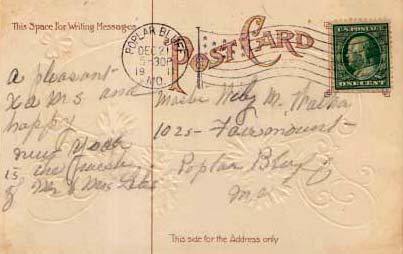 This Space For Writing Messages
POPLAR BLUFF
DEC 21
5-30P
19 11
MO.
POST CARD
U.S. POSTAGE
ONE CENT
a pleasant
Xams and
happy
new year
is the
of Mr & Mrs
M.
1025 - Fairmount
Poplar Bluff
Mo
This side for the Address only